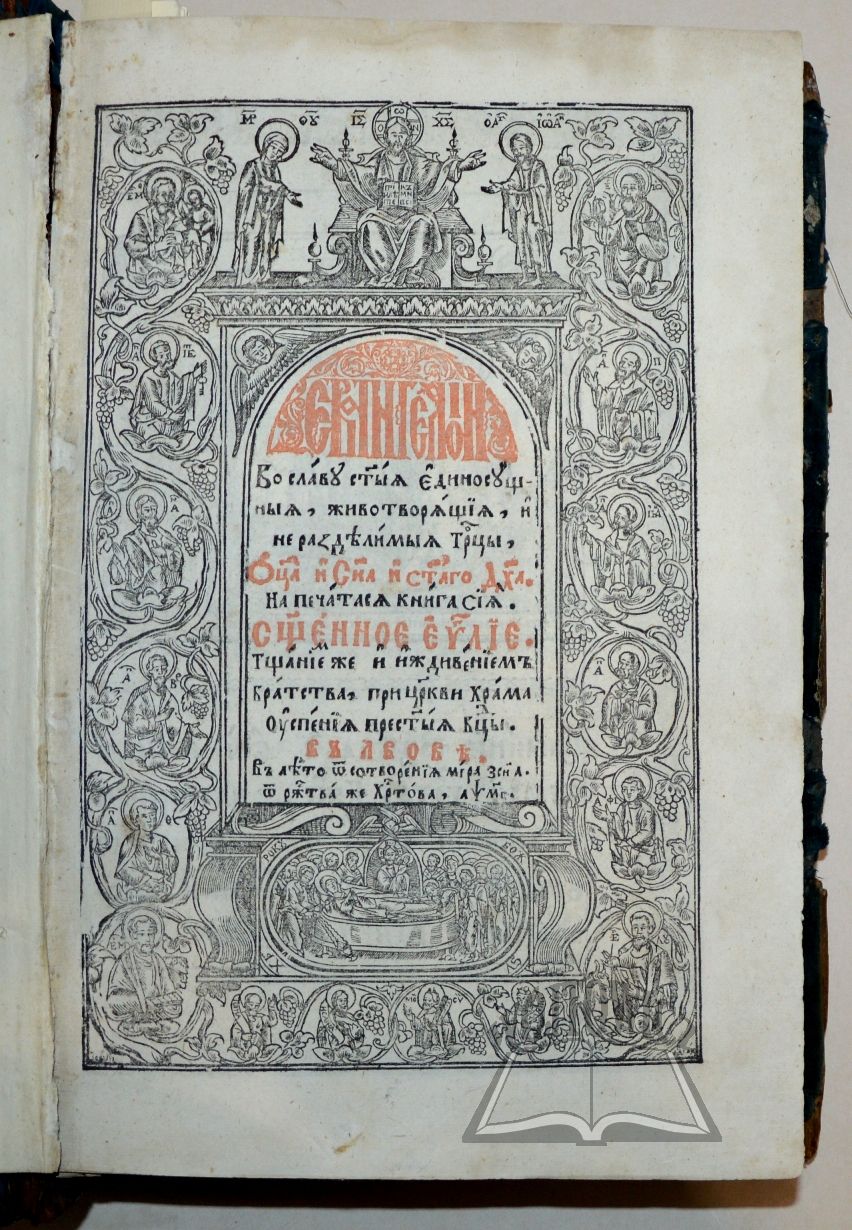 М҃Р Ѳ҃У І҃С Х҃С
ЕѴАНГЕЛІОН
Во сла́ву ст҃ы́ѧ є҆диносꙋщ-
ныѧ, животворѧ́щїѧ, и҆
нераздѣли́мыѧ Трⷪ҇цы,
Ѻ҆ц҃а̀ и҆ Сн҃а и҆ ст҃а́гѡ Дх҃а.
Напеча́тасѧ кни́га сїѧ̀.
СЩ҃Е́ННОЕ Є҆Ѵⷢ҇ЛЇЕ.
Тща́нїемже и҆ и҆ждиве́нїемъ
Бра́тства, при цр҃кви Хра́ма
Оу҆спе́нїѧ прест҃ы́ѧ Бц҃ы.
ВЪ ЛВОВѢ.
Въ лѣ́то ѿ сотворе́нїѧ мі́ра
ѿ ржⷭ҇тва́ же Хрⷭ҇то́ва,